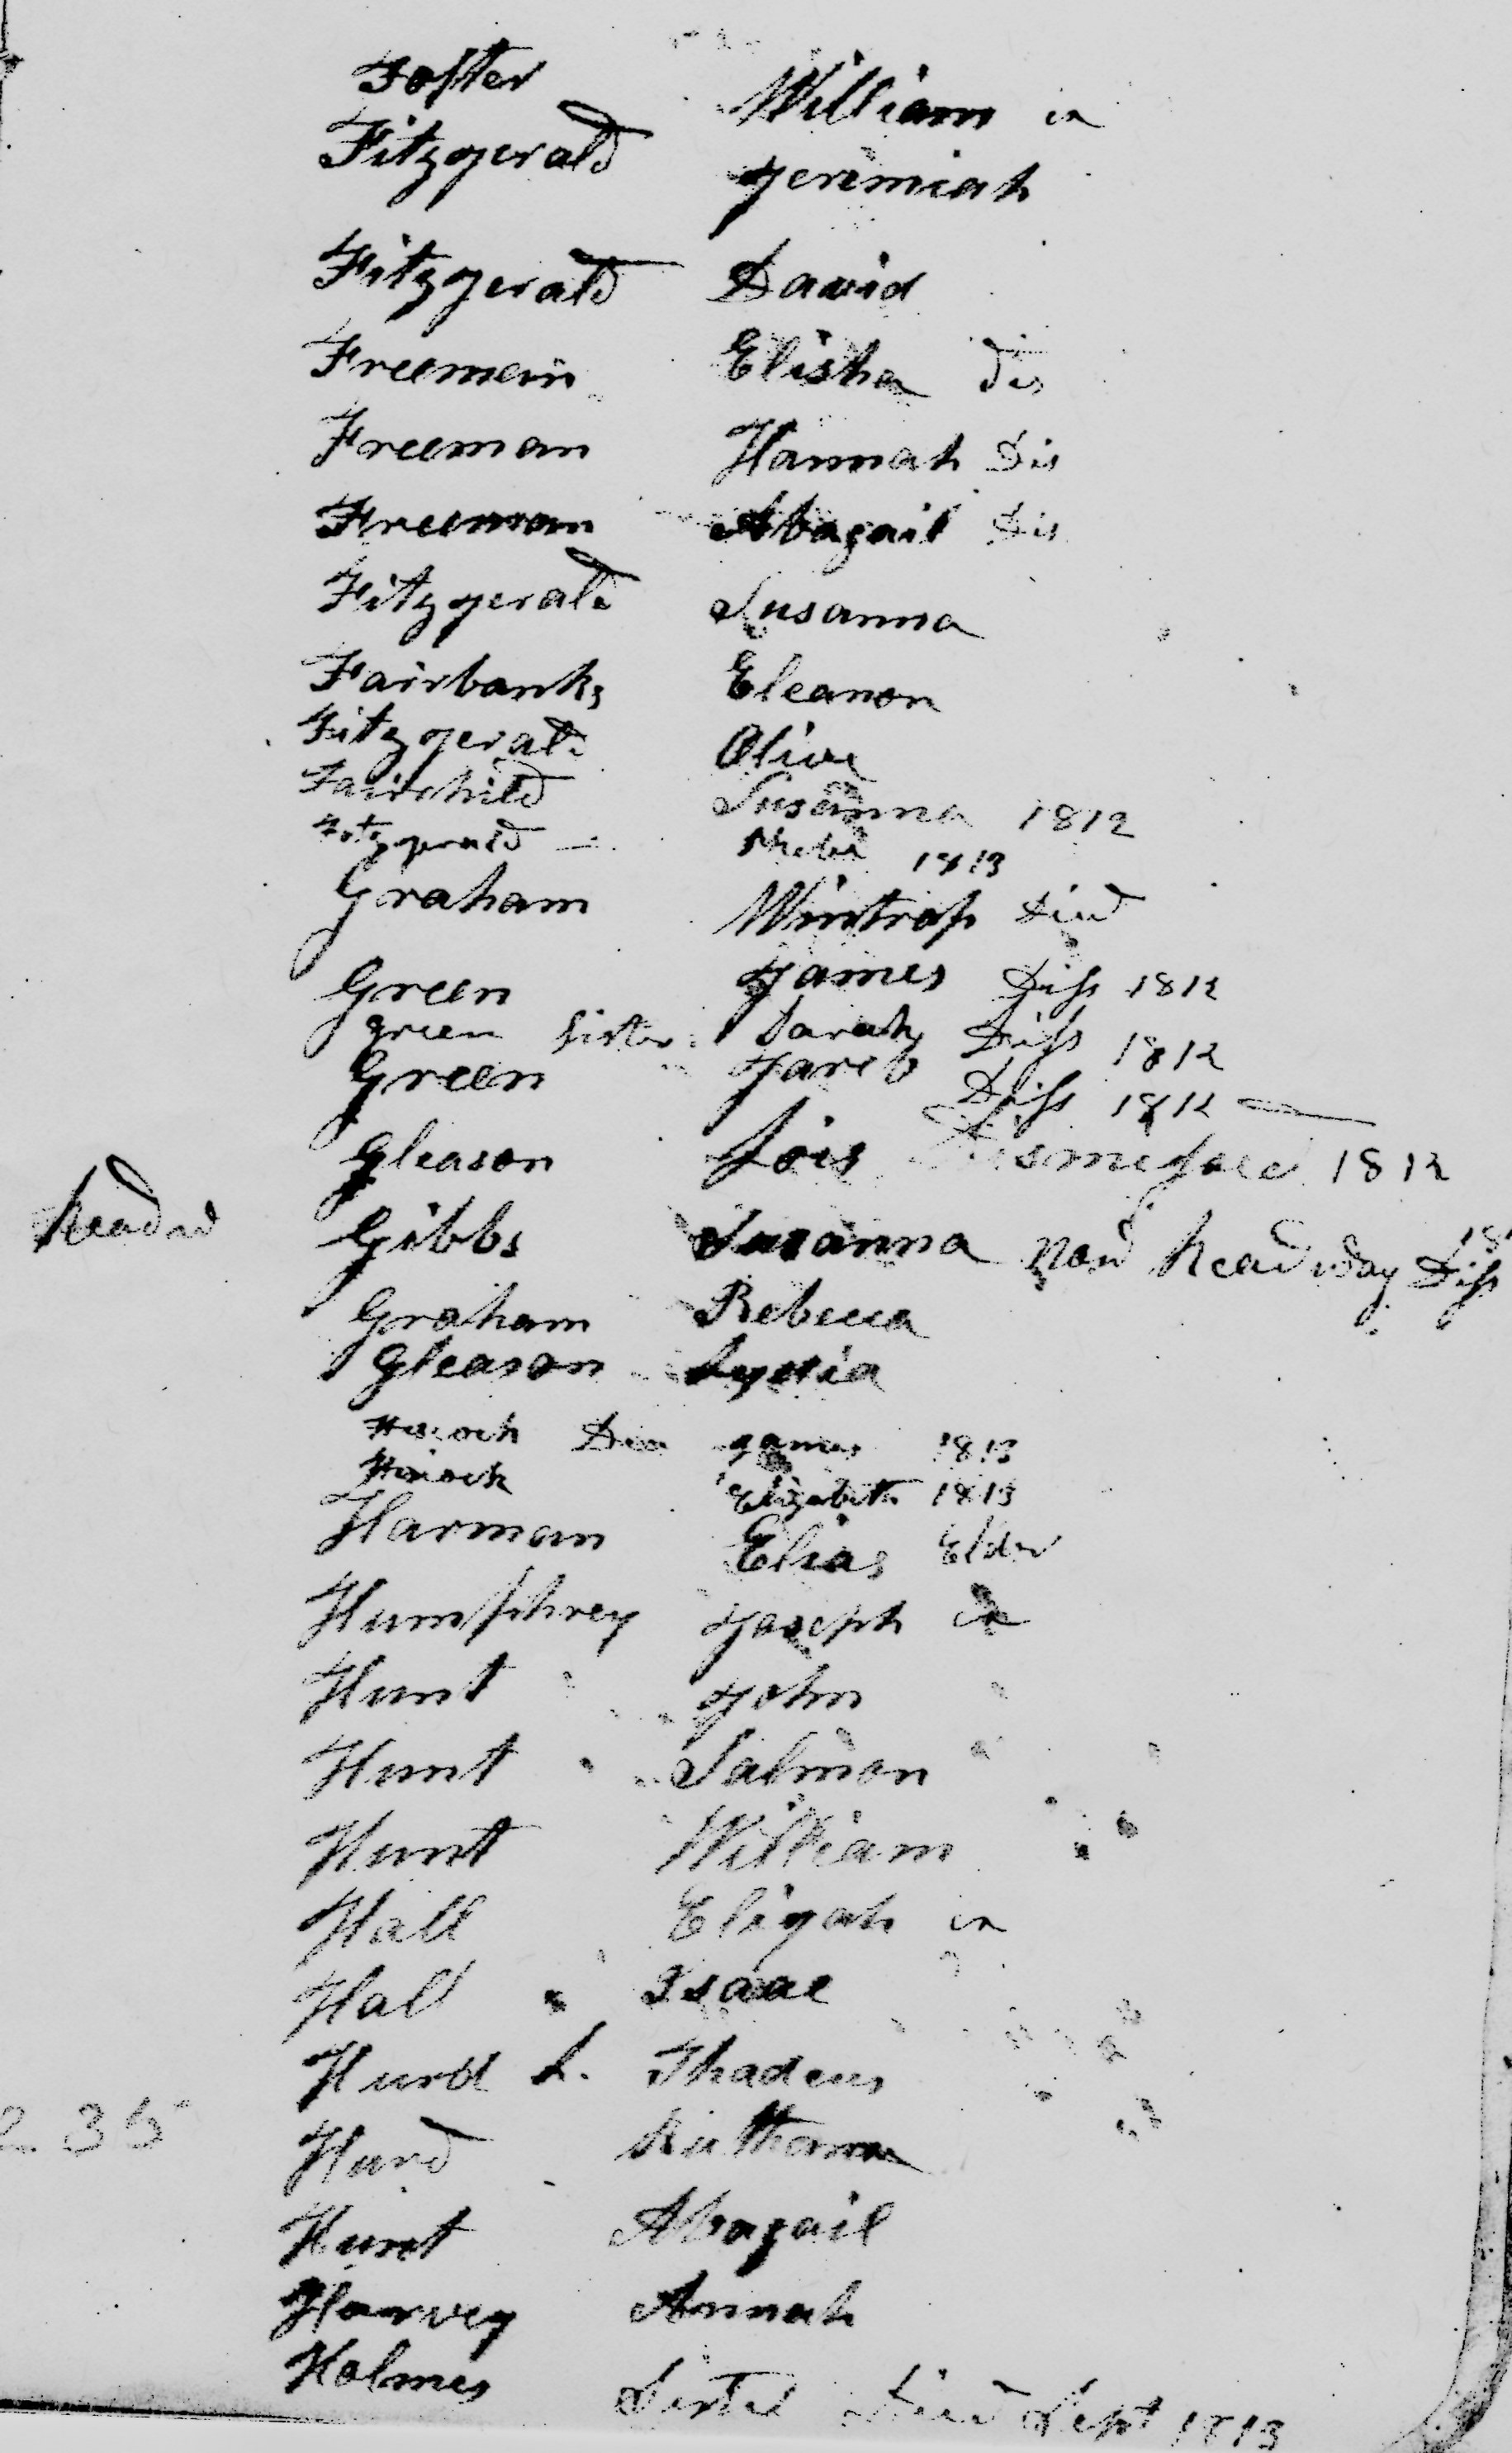 Foster William in
Fitzgerald Jeremiah
Fitzgerald David
Freeman Elisha dis
Freeman Hannah Dis
Freeman Abagail Dis
Fitzgerald Susanna
Fairbanks Eleanor
Fitzgerald Olive
Fairchild Susanna 1812
Fitzgerald Phebe 1813
Graham Wintrop Died
Green James Diss 1812
green Sister Sarah Diss 1812
Green Jareb Diss 1812
Gleason Lois 1812
Gibbs Susanna now Headway Diss
Graham Rebecca
Gleason Lydia
Dea James 1813
Elizabeth 1813
Harman Elias Elder
Humphrey Joseph in
Hunt John
Hunt Salmon
Hunt William
Hall Elijah in
Hall Isaac
Hurd L. Thadeus
235
Hurd Ruthanna
Hunt Abagail
Harvey Annah
Holmes Sister Died Sept 1813